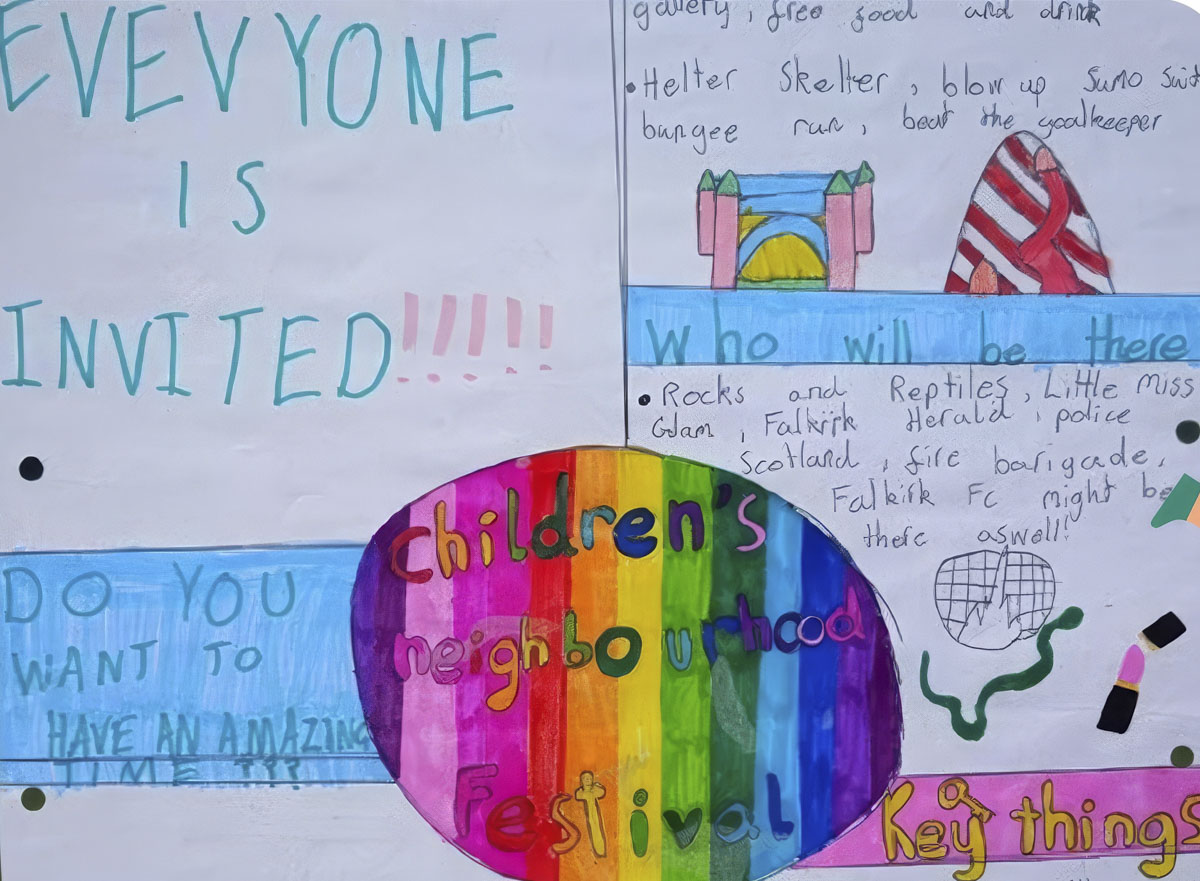 EVEVYONE
IS
INVITED!!!!!
DO YOU
WANT TO
HAVE AN AMAZING
TIME ???
gallery, free food and drink
• Helter Skelter, blow up Sumo Suit
bungee run, beat the goalkeeper
Who will be there
• Rocks and Reptiles, Little Miss
Glam, Falkirk Herald, police
Scotland, fire barigade,
Falkirk Fc might be
there aswell!
Children's
neighbourhood
Festival
Key things